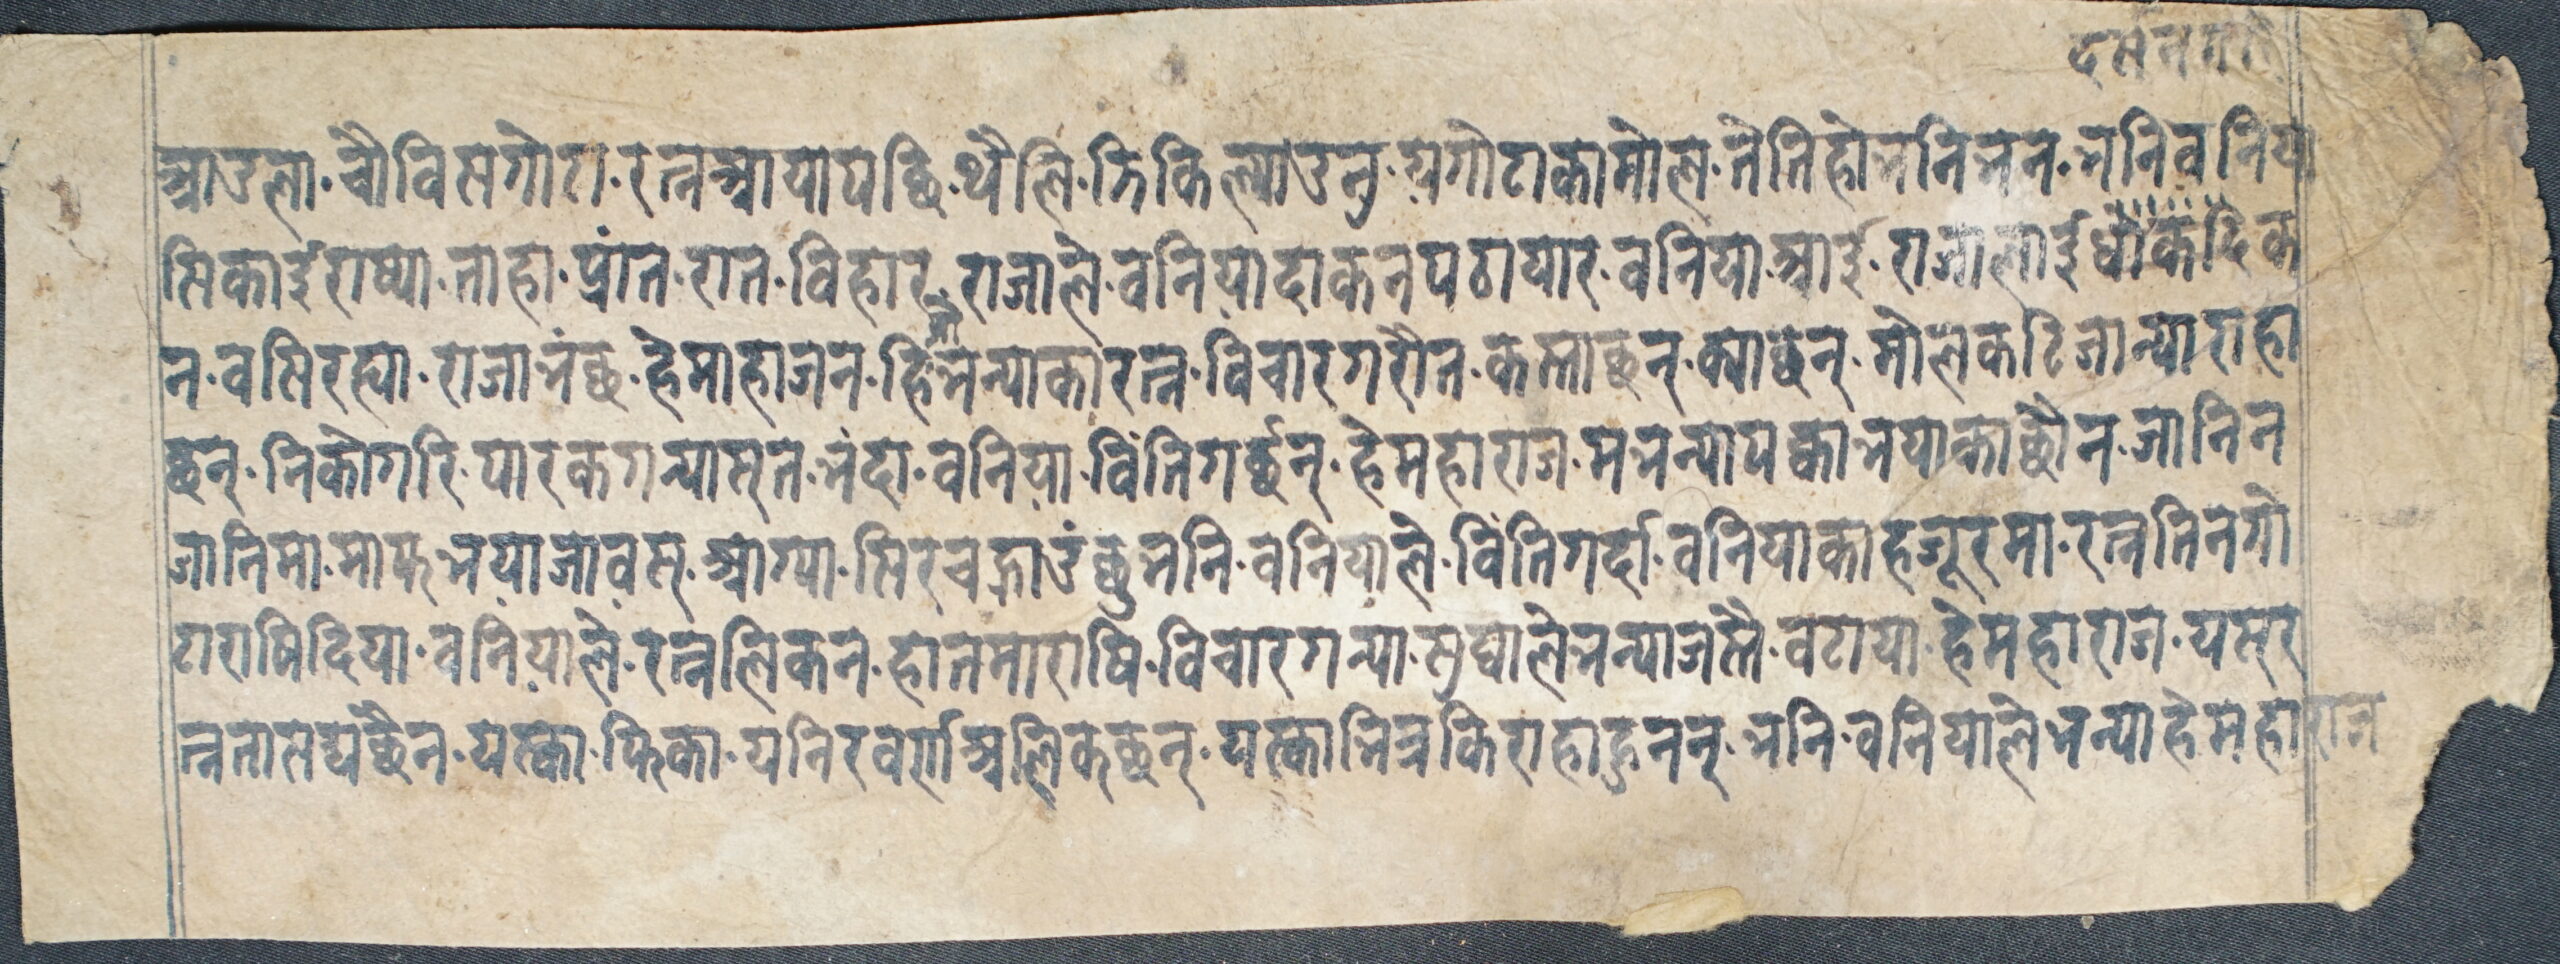 दर्सनगरि
आउला. चौविसगोटा. रत्नआयापछि. थैलि. झिकिल्याउनु. यगोटाकामोल. तेतिहोभनिभन. भनिवनिया
सिकाइराष्या. ताहा. प्रांत. रात. विहार. राजाले. वनियादाकनपठायार. वनिया. आई. राजालाई धोकदिक
न. वसिरह्या. राजाभंछ. हेमाहाजन. हिराभन्याकारत्न. विचारगरौत. कस्ताछन्. क्याछन्. मोलकटिजान्याराहा
छन्. निकोगरि. पारकगन्यास्त. भंदा. वनिया. विंतिगर्छन्. हेमहाराज. मभन्यापक्काभयाकाछौन. जानिन
जानिमा. माफ्भयाजावस्. आग्या. सिरचह्राउंछुभनि. वनियाले. विंतिगर्दा. वनियाकाहजूरमा. रत्नतिनगो
टाराषिदिया. वनियाले. रत्नलिकन. हातमाराषि. विचारगन्या. सुघालेभन्याजस्तै. वटाया. हेमहाराज. यस्र
त्नतासद्यछैन. यस्का. फिका. यनिरवर्साअलिकछन्. यस्काभित्रकिराहाहुनन्. भनि. वनियालेभन्याहेमहाराज